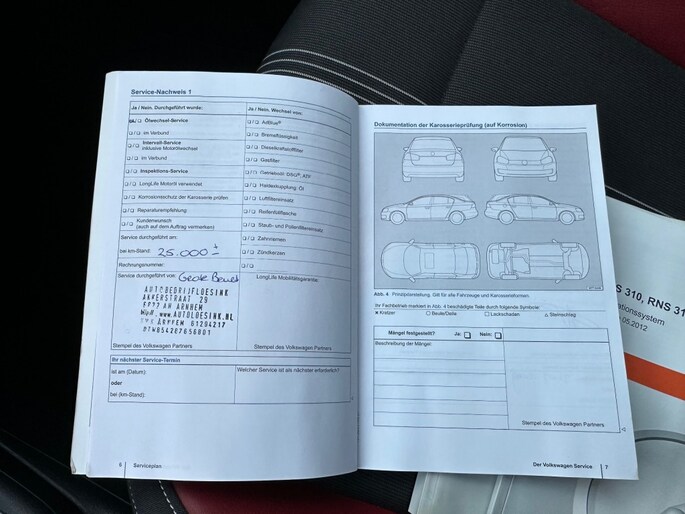 Service-Nachweis 1
Ja / Nein. Durchgeführt wurde:
Ölwechsel-Service
im Verbund
Intervall-Service
inklusive Motorölwechsel
im Verbund
Inspektions-Service
LongLife Motoröl verwendet
Korrosionsschutz der Karosserie prüfen
Reparaturempfehlung
Kundenwunsch
(auch auf dem Auftrag vermerken)
Service durchgeführt am:
bei km-Stand: 25.000
Rechnungsnummer:
Service durchgeführt von:
AUTOBEDRIJFLOESINK
AKKERSTRAAT 29
AH ARNHEM
WWW.AUTOLOESINK.NL
61294217
Stempel des Volkswagen Partners
Ja / Nein. Wechsel von:
AdBlue®
Bremsflüssigkeit
Dieselkraftstofffilter
Gasfilter
Getriebeöl: DSG®, ATF
Haldexkupplung: Öl
Luftfiltereinsatz
Reifenfüllflasche
Staub- und Pollenfiltereinsatz
Zahnriemen
Zündkerzen
LongLife Mobilitätsgarantie:
Stempel des Volkswagen Partners
Ihr nächster Service-Termin
ist am (Datum):
oder
bei (km-Stand):
Welcher Service ist als nächster erforderlich?
6 Serviceplan
Dokumentation der Karosserieprüfung (auf Korrosion)
Abb. 4 Prinzipdarstellung: Gilt für alle Fahrzeuge und Karosserieformen.
Ihr Fachbetrieb markiert in Abb. 4 beschädigte Teile durch folgende Symbole:
× Kratzer ○ Beule/Delle □ Lackschaden △ Steinschlag
Mängel festgestellt? Ja: Nein:
Beschreibung der Mängel:
Stempel des Volkswagen Partners
Der Volkswagen Service 7
S 310, RNS 31
ationssystem
05.2012